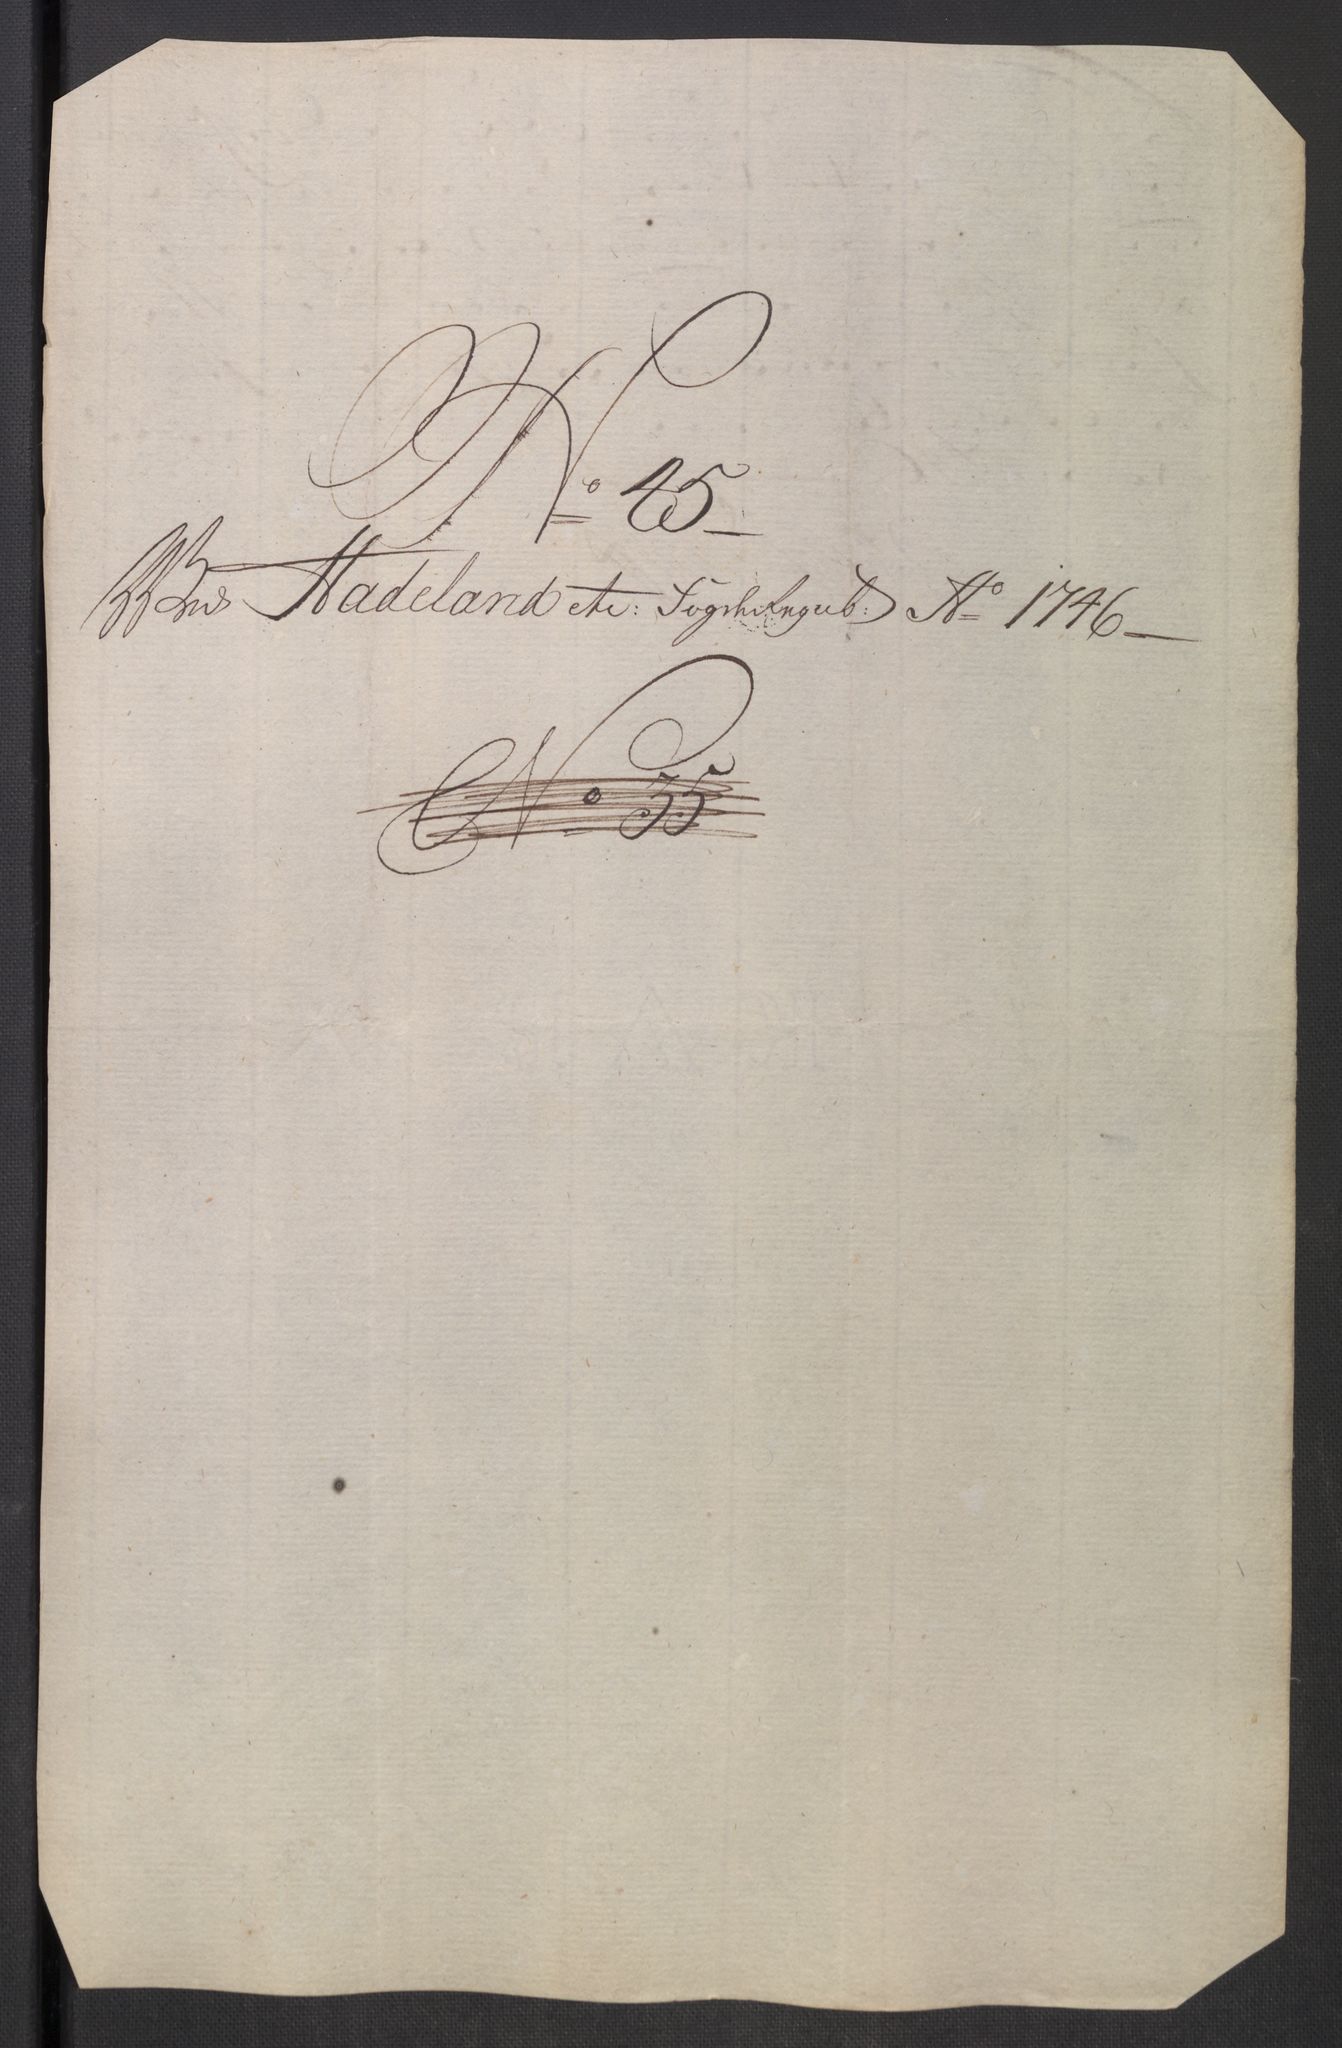 No 45
Hadeland etc: Fogderie Regnsk: Ao 1746
No 35